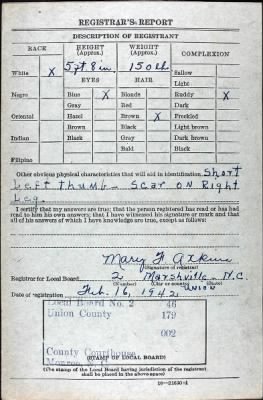 REGISTRAR'S REPORT
DESCRIPTION OF REGISTRANT
RACE HEIGHT (Approx.) WEIGHT (Approx.) COMPLEXION
White X 5 ft 8 in. 150 lb. Sallow
EYES HAIR Light
Negro Blue X Blonde Ruddy X
Gray Red Dark
Oriental Hazel Brown X Freckled
Brown Black Light brown
Indian Black Gray Dark brown
Bald Black
Filipino
Other obvious physical characteristics that will aid in identification Short
Left thumb - Scar on Right
Leg.
I certify that my answers are true; that the person registered has read or has had
read to him his own answers; that I have witnessed his signature or mark and that
all of his answers of which I have knowledge are true, except as follows:
Mary F
(Signature of registrar)
Registrar for Local Board 2 Marshville - N.C.
(Number) (City or county)
Date of registration Feb. 16, 1942 Union
Local Board No. 2 46
Union County 179
002
County Courthouse
Monroe, N. C.
(STAMP OF LOCAL BOARD)
(The stamp of the Local Board having jurisdiction of the registrant
shall be placed in the above space)
16—21630-1